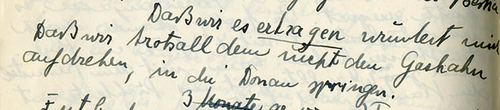 Daß wir es ertragen wundert mich
Daß wir trotzalldem nicht den Gashahn
aufdrehen, in die Donau springen.
3 Monate